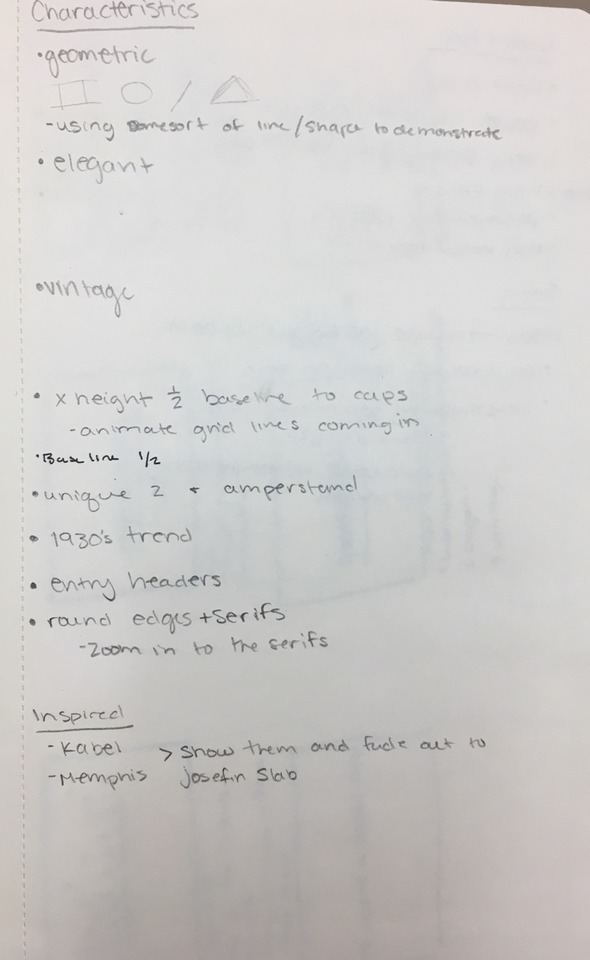 Characteristics
•geometric
-using somesort of line/shape to demonstrate
• elegant
•vintage
• x height ½ baseline to caps
-animate grid lines coming in
•Baseline 1/2
•unique 2 + amperstand
• 1930's trend
• entry headers
• round edges + serifs
-Zoom in to the serifs
Inspired
-Kabel > show them and fade out to
-Memphis Josefin Slab